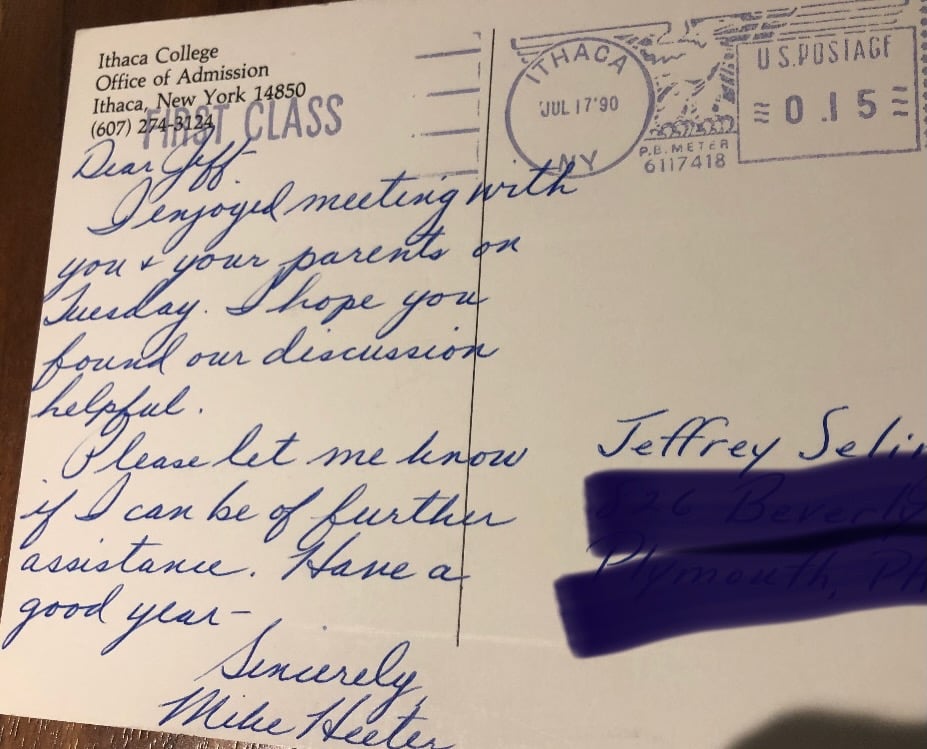 Ithaca College
Office of Admission
Ithaca, New York 14850
(607) 274-3124
FIRST CLASS
ITHACA
JUL 17'90
NY
P.B. METER
6117418
U.S. POSTAGE
0.15
Dear Jeff
I enjoyed meeting with
you & your parents on
Tuesday. I hope you
found our discussion
helpful.
Please let me know
if I can be of further
assistance. Have a
good year-
Sincerely,
Mike Heeter
Jeffrey